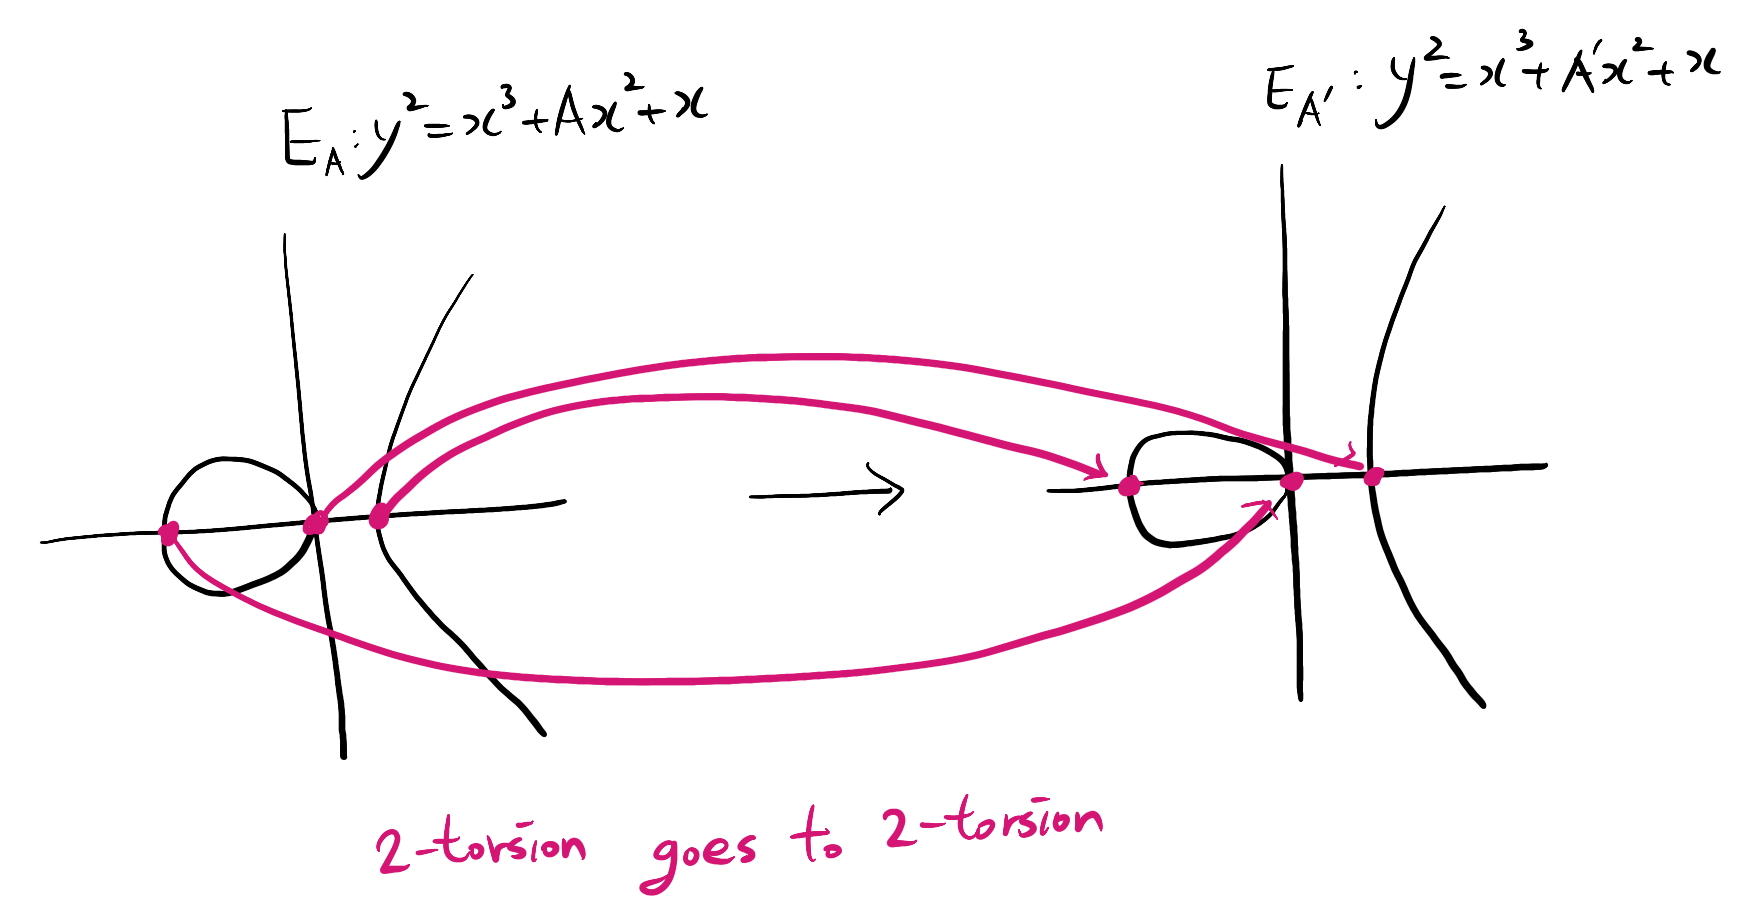 E_A : y² = x³ + Ax² + x
E_A' : y² = x³ + A'x² + x
2-torsion goes to 2-torsion